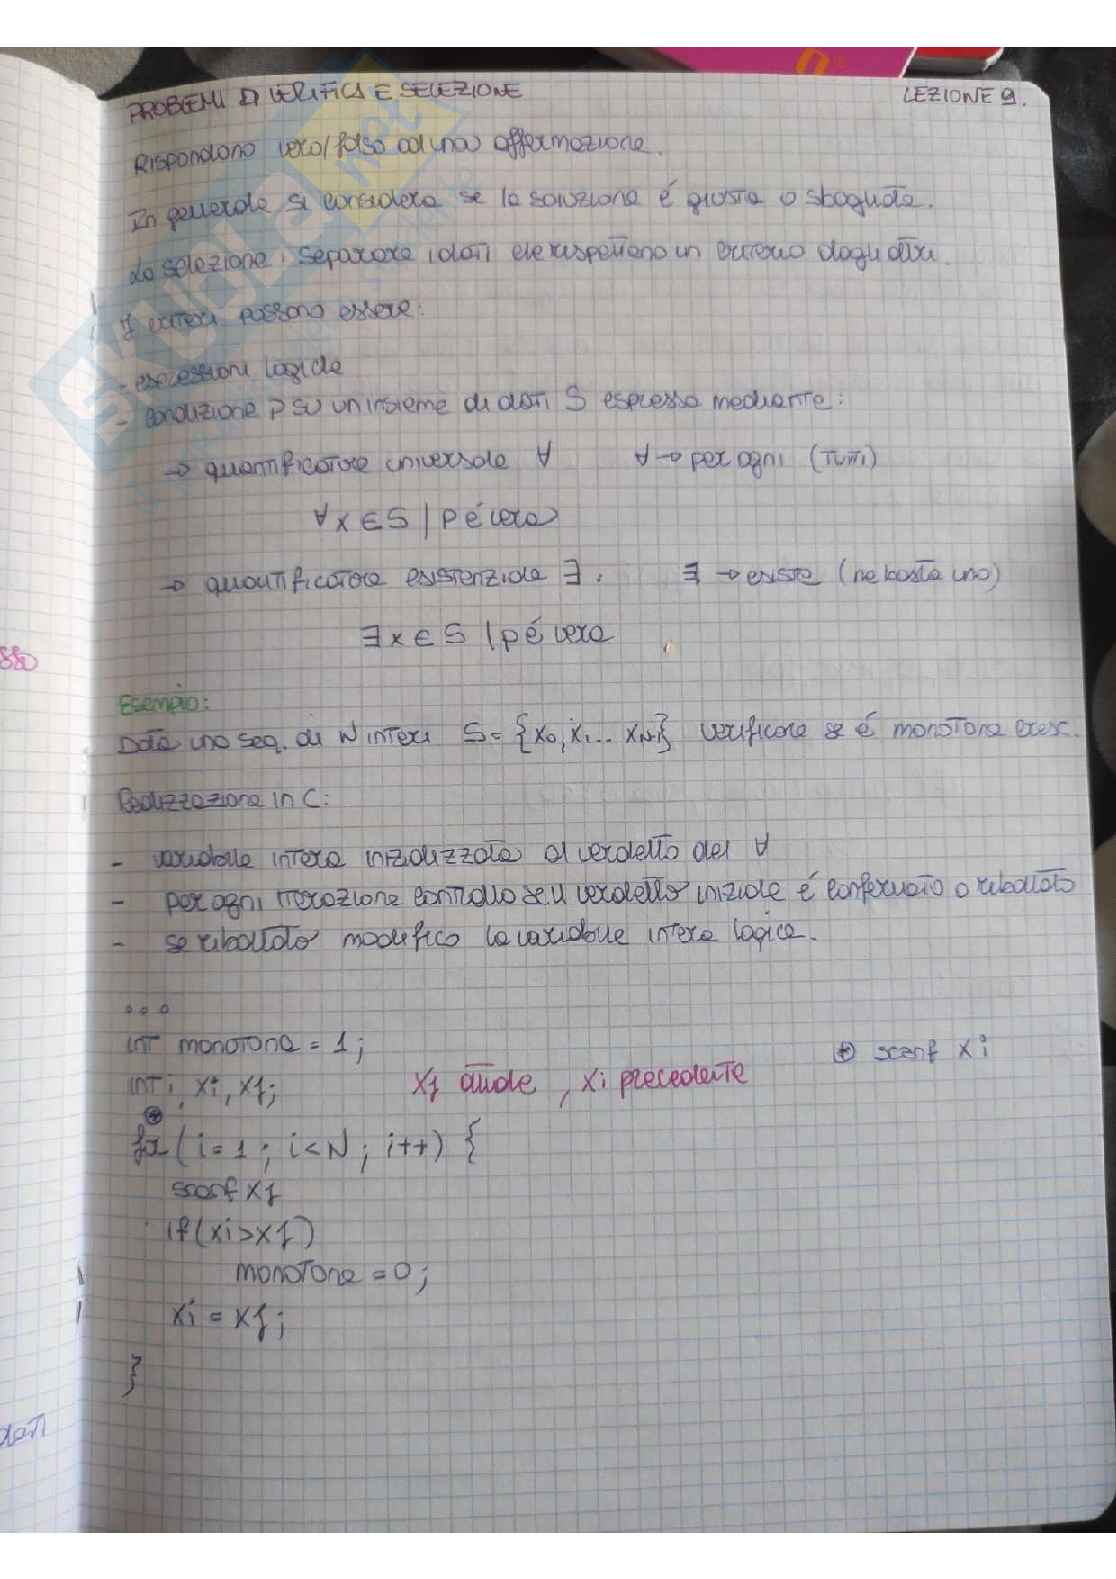 PROBLEMI DI VERIFICA E SELEZIONE LEZIONE 9.
Rispondono vero/falso ad una affermazione.
In generale si considera se la soluzione é giusta o sbagliata.
La selezione: separare i dati che rispettano un criterio dagli altri.
I criteri possono essere:
- espressioni logiche
- condizione P su un insieme di dati S espressa mediante:
→ quantificatore universale ∀ ∀ → per ogni (tutti)
∀ x ∈ S | P é vera
→ quantificatore esistenziale ∃. ∃ → esiste (ne basta uno)
∃ x ∈ S | p é vera
sso
Esempio:
Data una seq. di N interi S = {x0, x1... xN-1} verificare se é monotona cresc.
Realizzazione in C:
- variabile intera inizializzata al verdetto del ∀
- per ogni iterazione controllo se il verdetto iniziale é confermato o ribaltato
- se ribaltato modifico la variabile intera logica.
...
int monotona = 1; ⊛ scanf xi
int i, xi, xf; xf attuale, xi precedente
⊛
for (i=1; i<N; i++) {
scanf xf
if(xi>xf)
monotona = 0;
xi = xf;
}
dati
SKUOLA.net